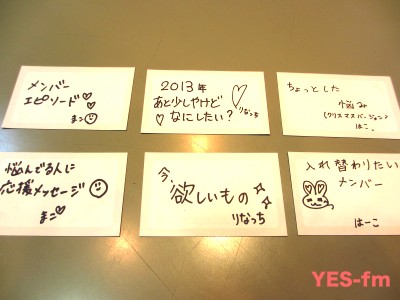 メンバー
エピソード♡♡
まこ☺
2013年
あと少しやけど
♡なにしたい?
りなっち
ちょっとした
悩み
(クリスマスバージョン)
はこ
悩んでる人に
応援メッセージ☺
まこ♡
今、
欲しいもの
りなっち
入れ替わりたい
メンバー
はーこ
YES-fm